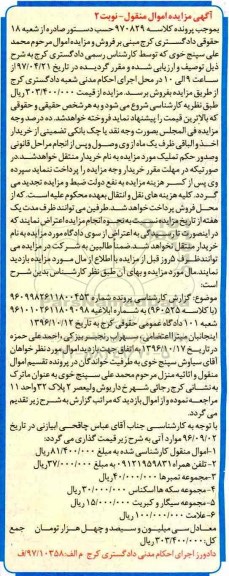 آگهی مزایده اموال منقول-نوبت ۲
بموجب پرونده کلاسه ۹۷۰۸۲۹ حسب دستور صادره از شعبه ۱۸
حقوقی دادگستری کرج مبنی بر فروش و مزایده اموال مرحوم محمد
علی سینج خوی که توسط کارشناس رسمی دادگستری کرج به شرح
ذیل توصیف و ارزیابی شده و مقرر گردیده در تاریخ ۹۷/۰۴/۲۱ از
ساعت ۹ الی ۱۰ در محل اجرای احکام مدنی شعبه دادگستری کرج
از طریق مزایده بفروش برسد. مزایده از قیمت ۳۰۳/۴۰۰/۰۰۰ ریال
طبق نظریه کارشناسی شروع می شود و به هر شخص حقیقی و حقوقی
که بالاترین قیمت را پیشنهاد نماید فروخته خواهد شد. ده درصد وجه
مزایده فی المجلس بصورت وجه نقد یا چک بانکی تضمینی از خریدار
اخذ و الباقی ظرف یک ماه از وی وصول و پس از انجام مراحل قانونی
وصدور حکم تملیک مورد مزایده به نام خریدار منتقل خواهد شد. در
صورتیکه در مهلت مقرر خریدار وجه مزایده را پرداخت ننماید سپرده
وی پس از کسر هزینه مزایده به نفع دولت ضبط و مزایده تجدید می
گردد. کلیه هزینه های نقل و انتقال بعهده محکوم علیه است. که از
محل فروش پرداخت خواهد شد. طرفین می توانند ظرف مدت یک
هفته از تاریخ مزایده نسبت به نحوه انجام مزایده اعتراض نمایند که
در اینصورت تا رسیدگی به اعتراض از سوی دادگاه مورد مزایده به نام
خریدار منتقل نخواهد شد. ضمنا طالبین به شرکت در مزایده می
توانند ظرف ۵ روز قبل از مزایده با اطلاع از مال مورد مزایده بازدید
نمایند. مال مورد مزایده و بهای آن طبق نظر کارشناس بدین شرح
است:
موضوع: گزارش کارشناسی پرونده شماره ۹۶۰۹۹۸۲۶۱۱۸۰۰۴۵۳
(با کلاسه ۹۶۰۵۲۵) به شماره ابلاغیه ۹۶۱۰۱۰۲۶۱۱۸۰۹۰۹۸
شعبه ۱۰۱ دادگاه عمومی حقوقی کرج به تاریخ ۱۳۹۶/۱۰/۱۲
اینجانبان میترا اعتصامی، سهراب رنجبر بیزکی، احمد علی حمزه
در تاریخ ۱۳۹۶/۱۰/۱۷ به اتفاق جهت بازدید اموال مورد نظر خواهان
آقای سیاوش سینج خوی به طرفیت خواندگان در پرونده تقسیم اموال
منقول و اثاثیه منزل مرحوم محمد علی سینج خوی به عنوان ماترک
به نشانی کرج رجائی شهر خ داریوش ولیعصر ۲ پلاک ۳۲ واحد ۱۱
مراجعه نموده و از اموال بازدید که مراتب گزارش به شرح زیر تقدیم
می گردد.
با توجه به کارشناسی جناب آقای عباس چاقحی ایبازنی در تاریخ
۹۶/۰۹/۰۲ موارد آتی به شرح زیر قیمت گذاری می گردد:
۱-اموال منقول کارشناسی شده به مبلغ ۸۱/۴۰۰/۰۰۰ ریال
۲-تلفن همراه ۰۹۱۲۱۹۵۹۸۳۱ به مبلغ ۳۷/۰۰۰/۰۰۰ ریال
۳-مجموعه تمبرها ۴۰/۰۰۰/۰۰۰ ریال
۴-مجموعه سکه ها اسکناس ۳۰/۰۰۰/۰۰۰ ریال
۵-مجموعه سیگار و کبریت ۱۵/۰۰۰/۰۰۰ ریال
۶-علامت ۱۰۰/۰۰۰/۰۰۰ ریال
معادل سی میلیون و سیصد و چهل هزار تومان جمع
کل: ۳۰۳/۴۰۰/۰۰۰ ریال
دادورز اجرای احکام مدنی دادگستری کرج م الف: ۹۷/۱۰۳۵۸/ف